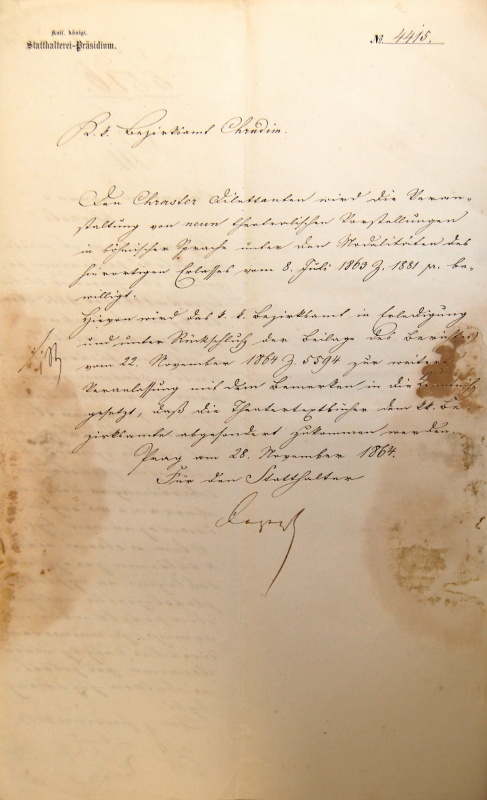 Kais. königl.
Statthalterei-Präsidium.
№ 4415.
K. k. Bezirksamt Chrudim.
Den Chraster Dilettanten wird die Veran-
staltung von neun theatralischen Vorstellungen
in böhmischer Sprache unter den Modalitäten des
hierortigen Erlasses vom 8. Juli 1863 Z. 1881 pr. be-
willigt.
Hievon wird das k. k. Bezirksamt in Erledigung
und unter Rückschluß der Beilage des Berichtes
vom 22. November 1864 Z 5594 zur weitern
Veranlassung mit dem Bemerken in die Kenntniß
gesetzt, daß die Theatertextbücher dem kk. Be-
zirksamte abgesondert zukommen werden.
Prag am 28. November 1864.
Für den Statthalter